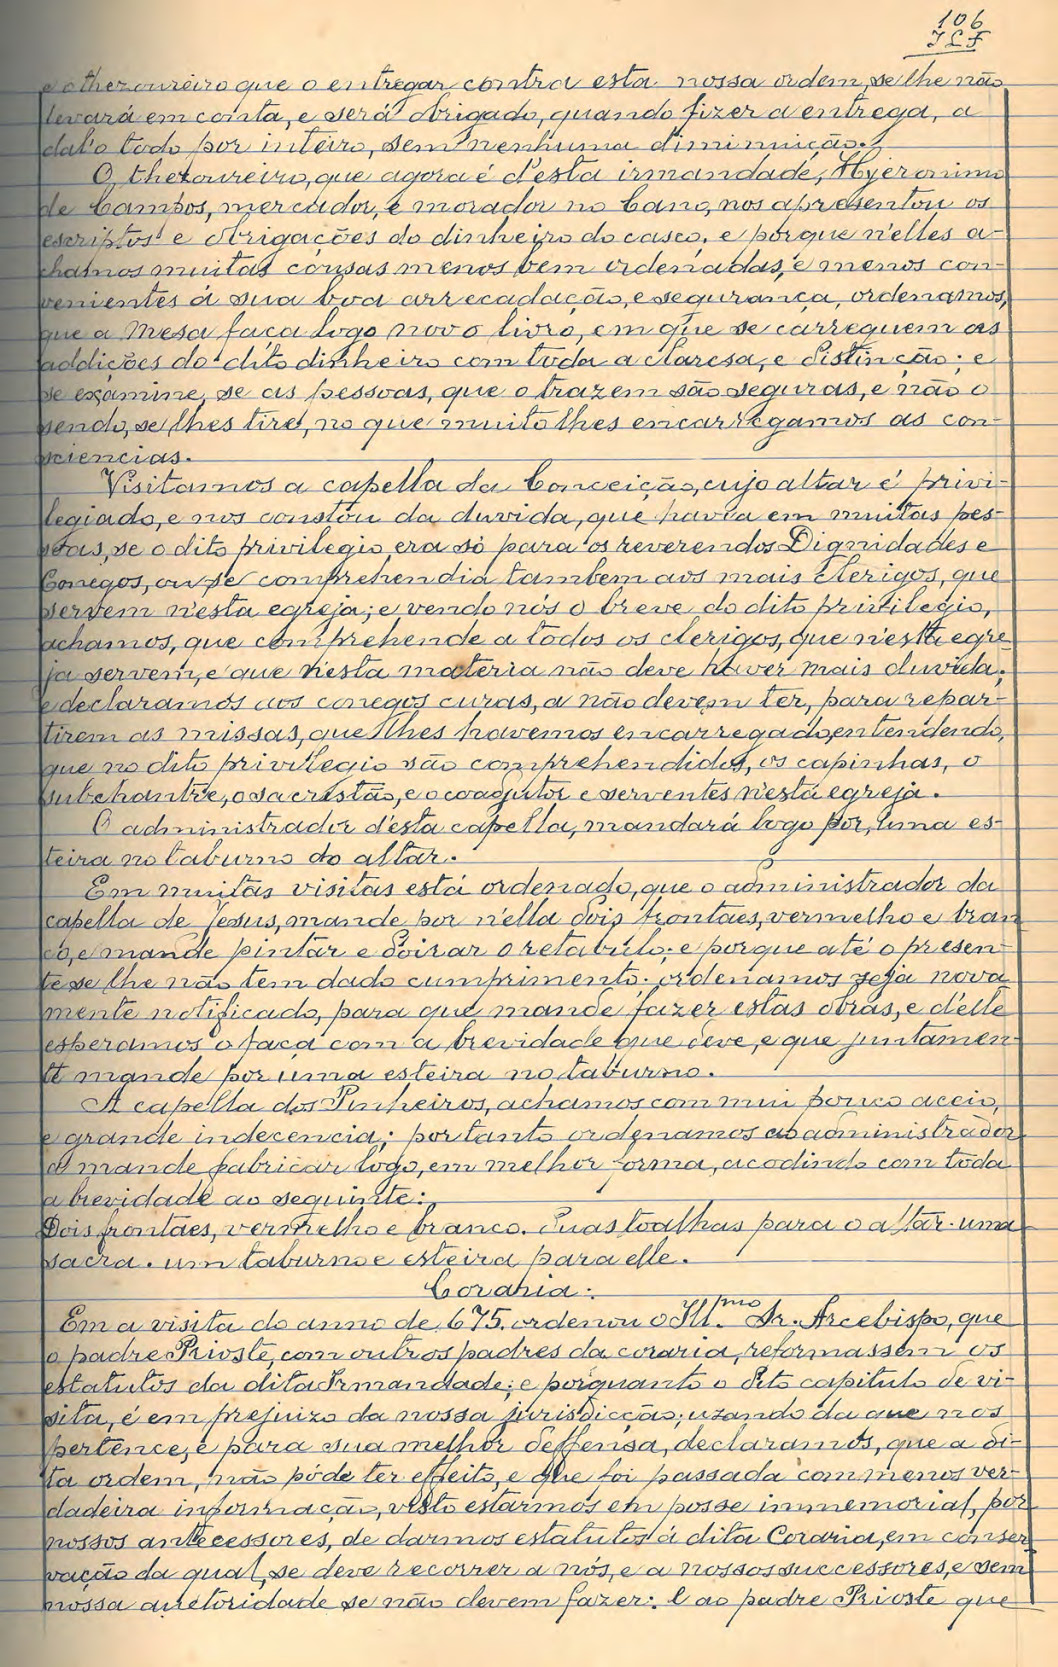 106
JLF
e o thezoureiro que o entregar contra esta nossa ordem, se lhe não
levará em conta, e será obrigado, quando fizer a entrega, a
dal'o todo por inteiro, sem nenhuma diminuição.
O thezoureiro, que agora é d'esta irmandade, Hyeronimo
de Campos, mercador, e morador no Cano, nos apresentou os
escriptos e obrigações do dinheiro do casco, e porque n'elles a-
chamos muitas cousas menos bem ordenadas, e menos con-
venientes á sua boa arrecadação, e segurança, ordenamos,
que a Mesa faça logo novo livro, em que se carreguem as
addições do dito dinheiro com toda a claresa, e distincção; e
se examine, se as pessoas, que o trazem são seguras, e não o
sendo, se lhes tire, no que muito lhes encarregamos as con-
sciencias.
Visitamos a capella da Conceição, cujo altar é privi-
legiado, e nos constou da duvida, que havia em muitas pes-
soas, se o dito privilegio era só para os reverendos Dignidades e
Conegos, ou se comprehendia tambem aos mais clerigos, que
servem n'esta egreja; e vendo nós o breve do dito privilegio,
achamos, que comprehende a todos os clerigos, que n'esta egre-
ja servem, e que n'esta materia não deve haver mais duvida;
e declaramos aos conegos curas, a não devem ter, para repar-
tirem as missas, que lhes havemos encarregado, entendendo,
que no dito privilegio são comprehendidos, os capinhas, o
subchantre, o sacristão, e o coadjutor e serventes n'esta egreja.
O administrador d'esta capella, mandará logo pôr, uma es-
teira no taburno do altar.
Em muitas visitas está ordenado, que o administrador da
capella de Jesus, mande por n'ella dois frontaes, vermelho e bran
co, e mande pintar e doirar o retabulo; e porque até o presen-
te se lhe não tem dado cumprimento; ordenamos seja nova
mente notificado, para que mande fazer estas obras, e d'elle
esperamos o faça com a brevidade que deve, e que juntamen-
te mande por uma esteira no taburno.
A capella dos Pinheiros, achamos com mui pouco aceio,
e grande indecencia; portanto ordenamos ao administrador
a mande fabricar logo, em melhor forma, acodindo com toda
a brevidade ao seguinte:
Dois frontaes, vermelho e branco. Duas toalhas para o altar. uma
sacra. um taburno e esteira para elle.
Coraria:
Em a visita do anno de 675. ordenou o Ill.mo Sr. Arcebispo, que
o padre Prioste, com outros padres da coraria, reformassem os
estatutos da dita Irmandade; e porquanto o dito capitulo de vi-
sita, é em prejuizo da nossa jurisdicção; uzando da que nos
pertence, e para sua melhor deffensa, declaramos, que a di-
ta ordem, não póde ter effeito, e que foi passada com menos ver-
dadeira informação, visto estarmos em posse immemorial, por
nossos antecessores, de darmos estatutos á dita Coraria, em conser
vação da qual, se deve recorrer a nós, e a nossos successores, e sem
nossa auctoridade se não devem fazer; e ao padre Prioste que